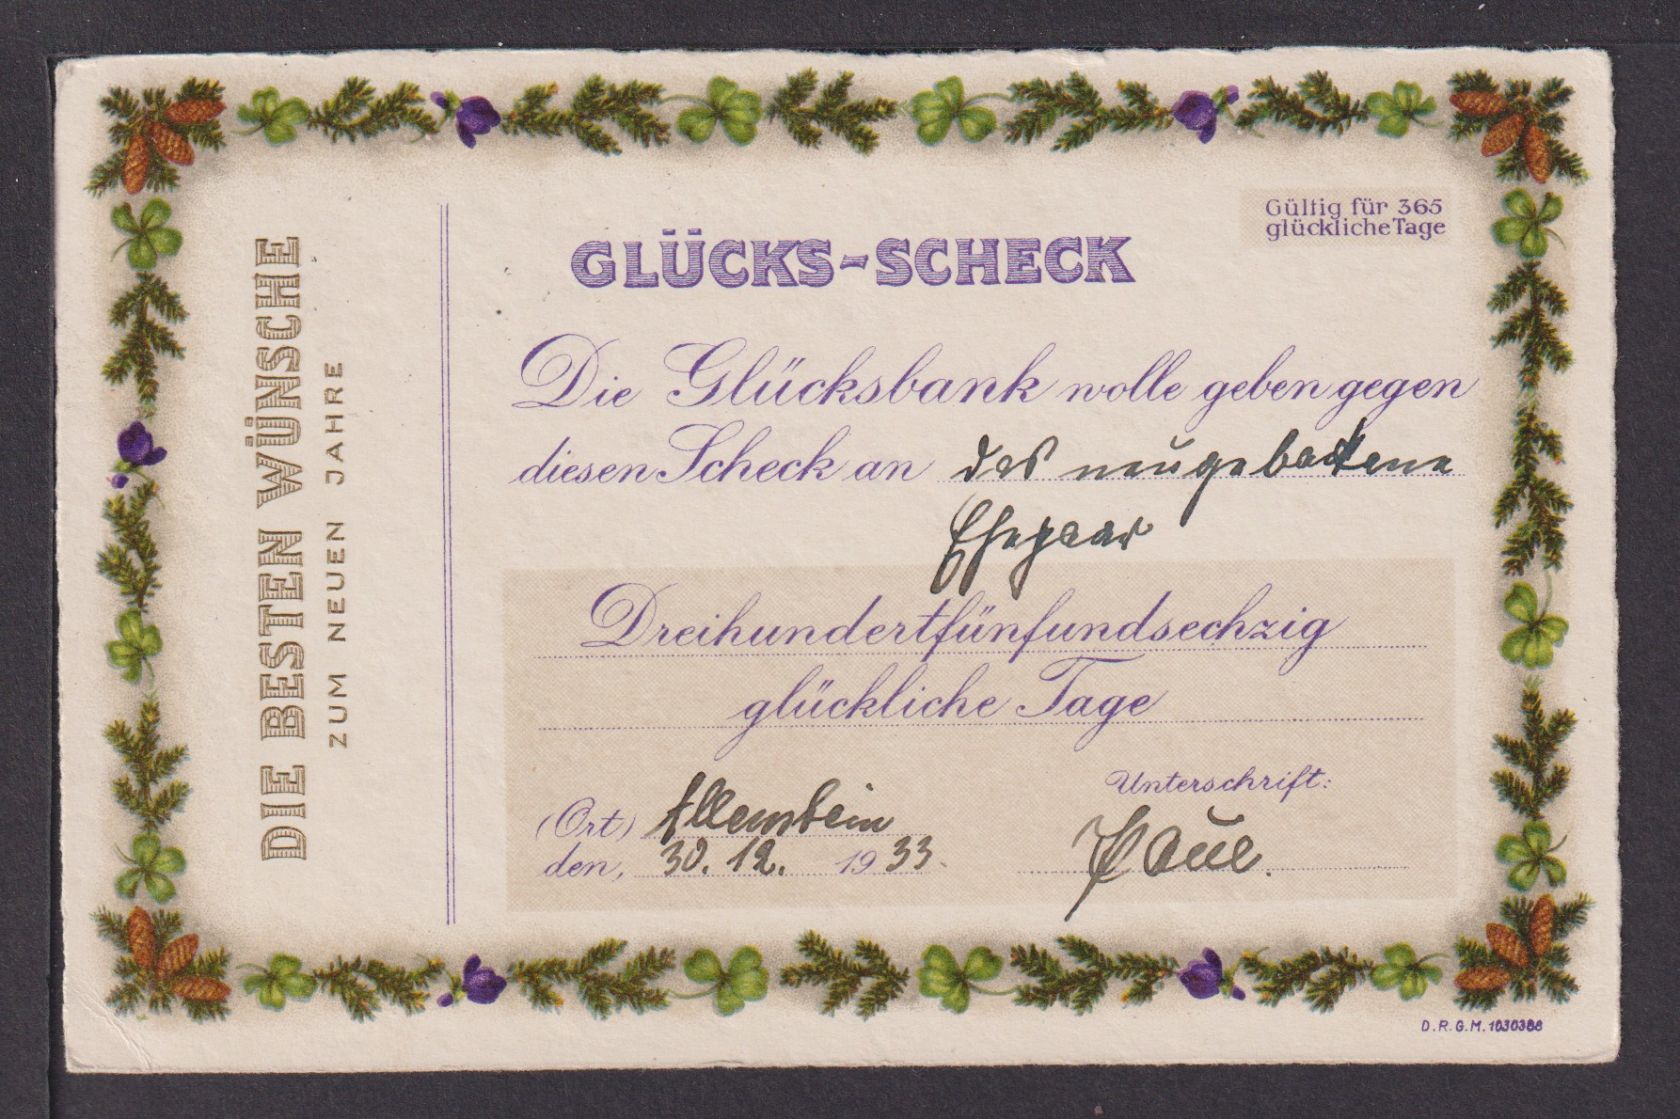 DIE BESTEN WÜNSCHE
ZUM NEUEN JAHRE
Gültig für 365
glückliche Tage
GLÜCKS-SCHECK
Die Glücksbank wolle geben gegen
diesen Scheck an das neugebackene
Ehepaar
Dreihundertfünfundsechzig
glückliche Tage
(Ort) Allenstein
den, 30. 12. 1933.
Unterschrift:
Paul.
D.R.G.M. 1030388